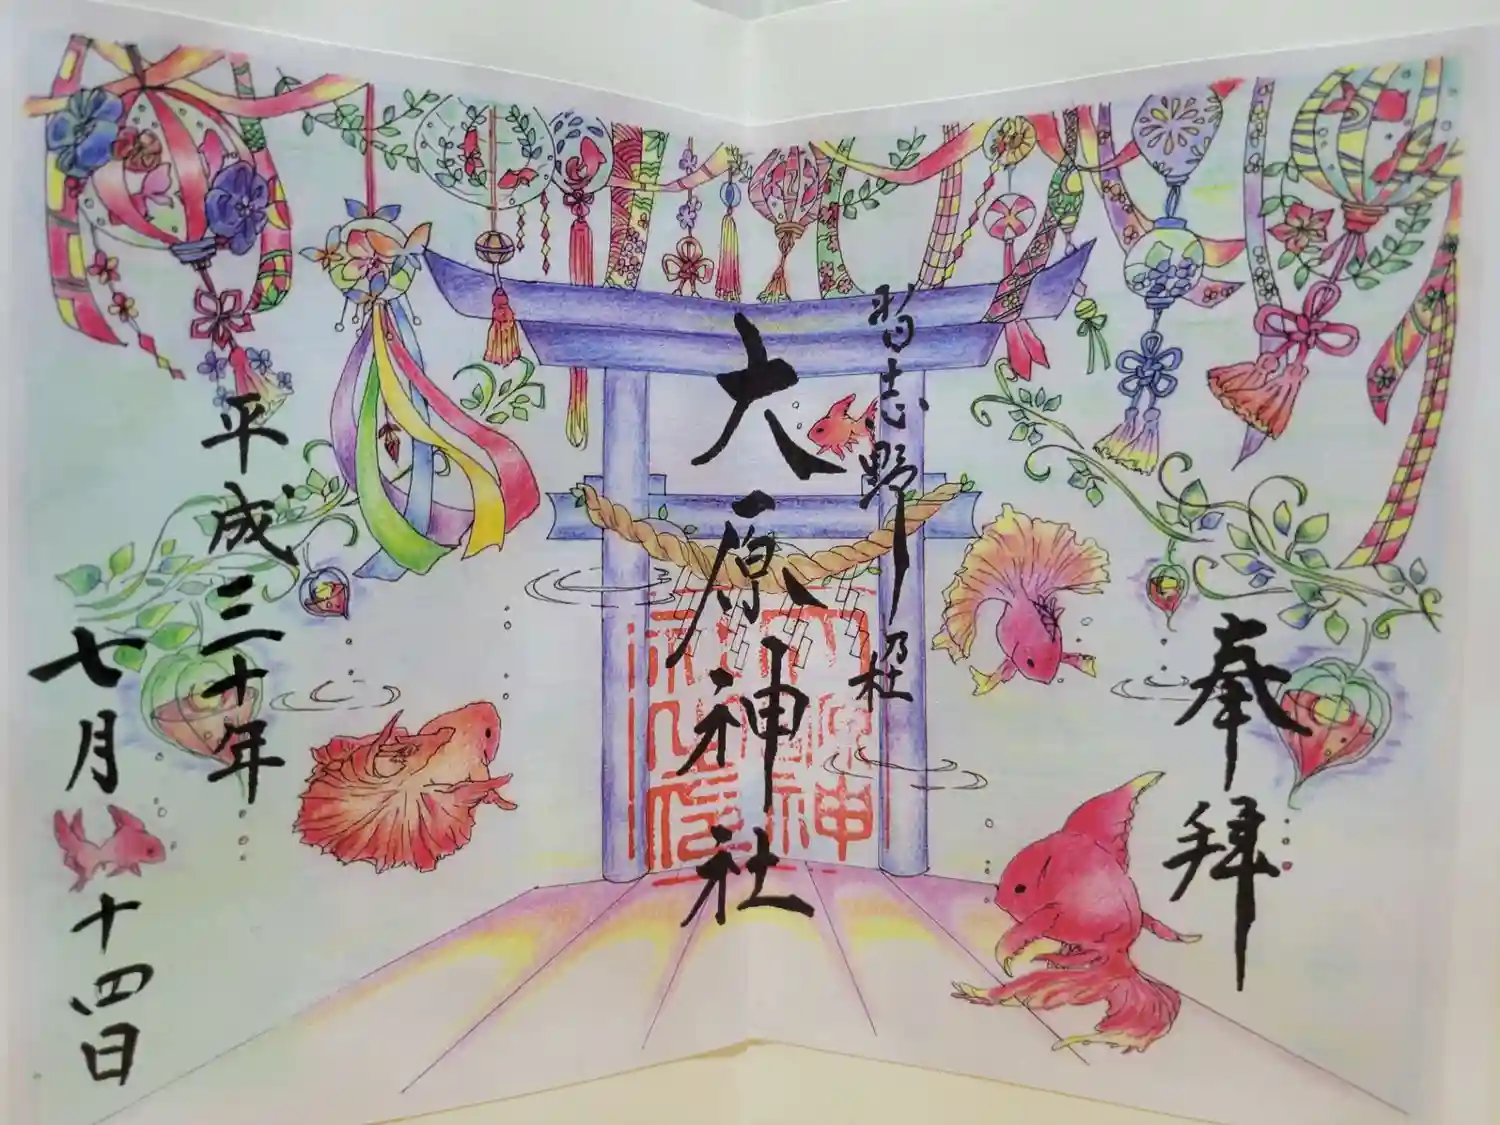 奉拝
習志野
大原神社
平成三十年
七月十四日